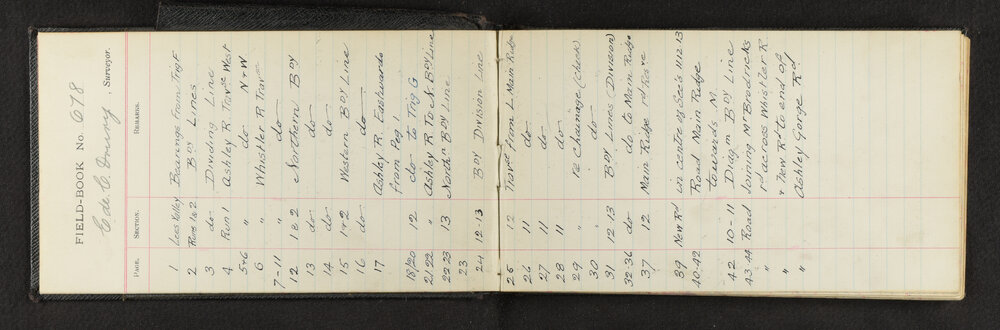 FIELD-BOOK No. 678
C de C. Drury, Surveyor.
PAGE. SECTION. REMARKS.
1 Lees Valley Bearings from Trig F
2 Runs 1 & 2 Bdy Lines
3 do Dividing Line
4 Run 1 Ashley R. Travse West
5 & 6 " do N & W
6 " Whistler R Travse
7-11 " do
12 1 & 2 Northern Bdy
13 do do
14 do do
15 1 & 2 Western Bdy Line
16 do do
17 Ashley R. Eastwards
from Peg 1
18/20 12 do to Trig G
21/22 " Ashley R to N. Bdy Line
22/23 13 Northn Bdy Line
23
24 12-13 Bdy Division Line
25 12 Travse from L Main Ridge
26 11 do
27 11 do
28 11 do
29 " Re Chainage (check)
30 " do
31 12 13 Bdy Lines (Division)
32-36 do do to Main Ridge
37 12 Main Ridge rd Reserve
39 New Rd in centre of Sec's 11 12 13
40-42 Road Main Ridge
towards N.
42 10-11 Diagn Bdy Line
43-44 Road Joining Mr Brodricks
" rd across Whistler R
" & new Rd to end of
" Ashley Gorge Rd